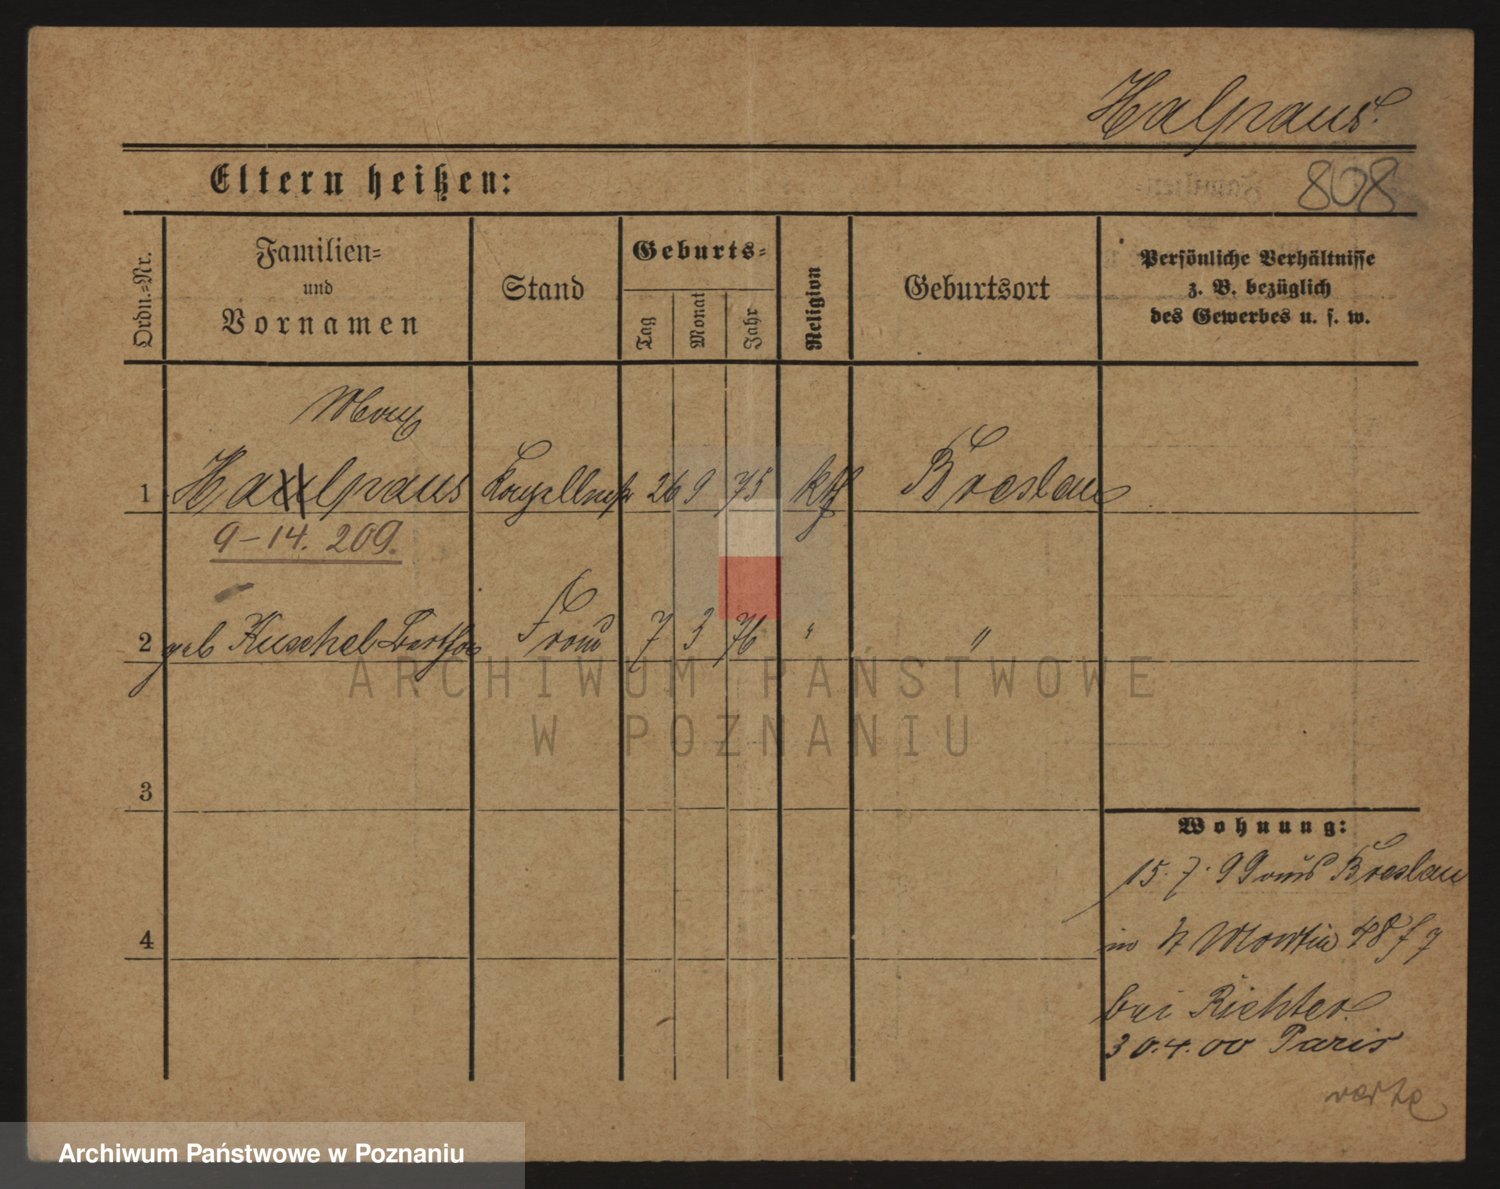 Halpaus.
808
Eltern heißen:
Ordn.-Nr.
Familien-
und
Vornamen
Stand
Geburts-
Tag
Monat
Jahr
Religion
Geburtsort
Persönliche Verhältnisse
z. B. bezüglich
des Gewerbes u. s. w.
1 Halpaus 26 9 75 kth Breslau
9-14. 209.
2 geb Kuschel Frau 7 3 76 " "
ARCHIWUM PAŃSTWOWE
W POZNANIU
3
Wohnung:
15. 7. 99 aus Breslau
4
in St Martin 48
bei Richter
30.4.00 Paris
Archiwum Państwowe w Poznaniu